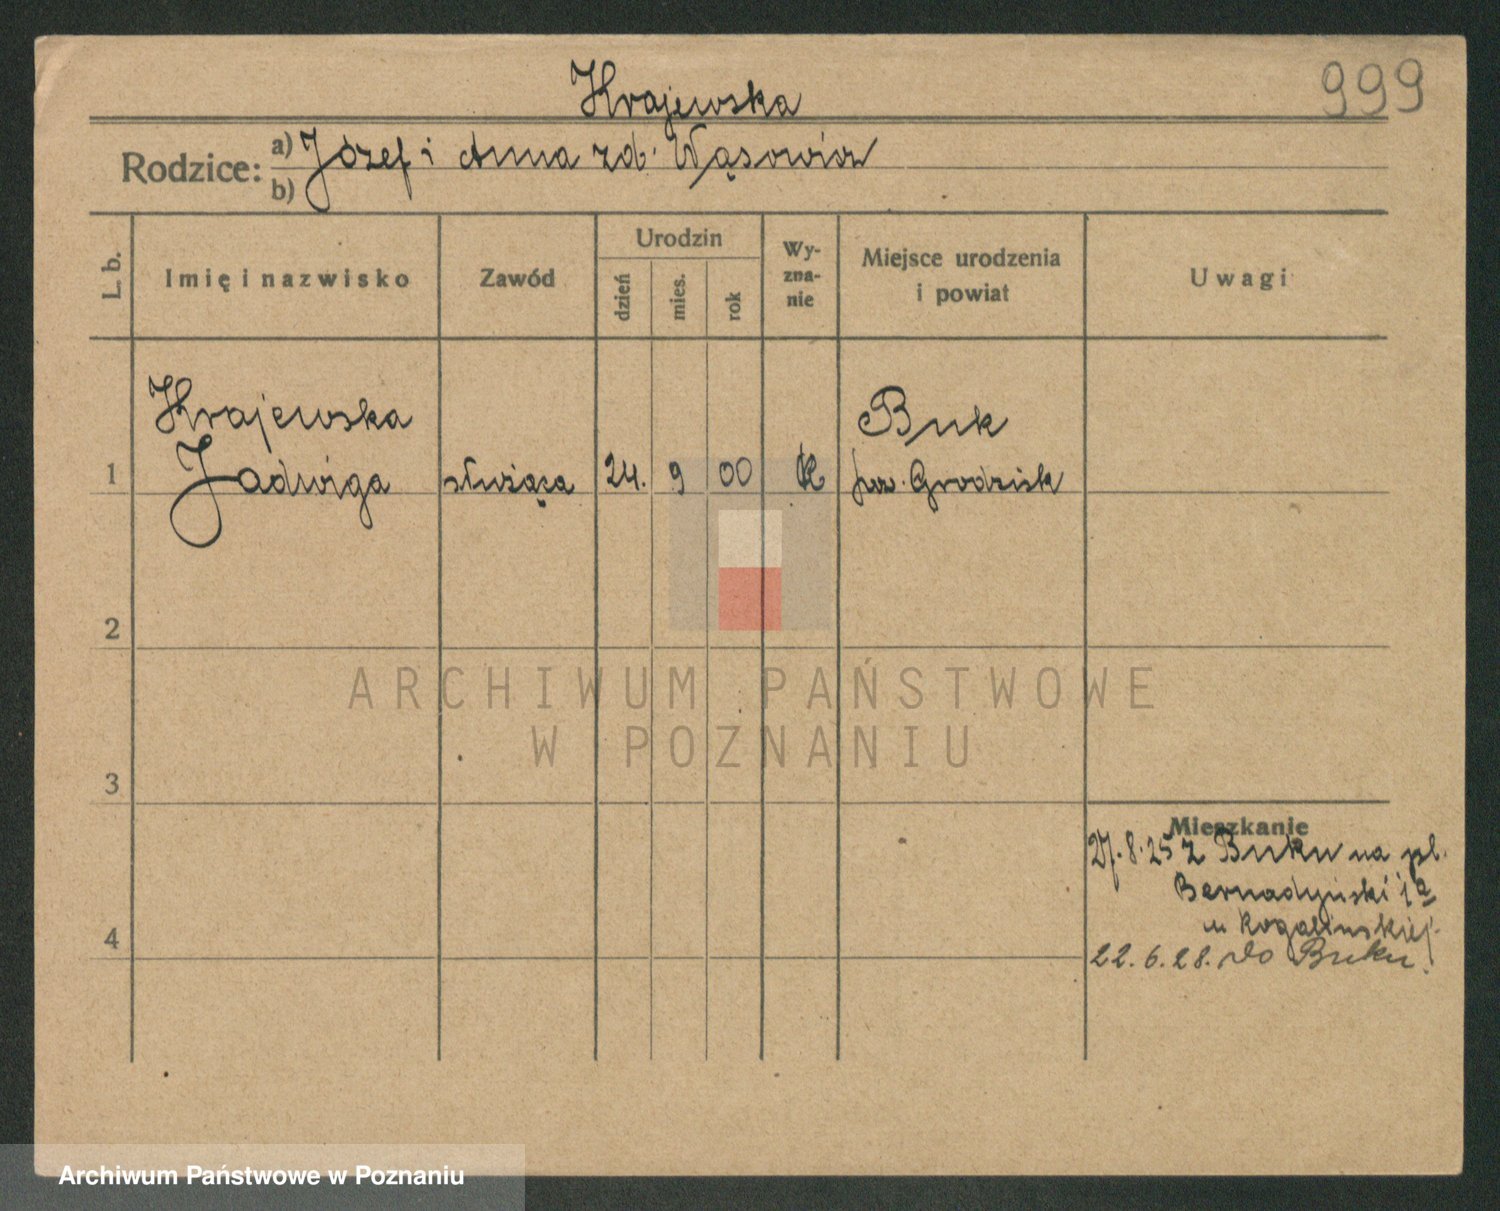 999
Krajewska
Rodzice: a) Józef i Anna zd. Wąsowicz
b)
L. b.
Imię i nazwisko
Zawód
Urodzin
dzień
mies.
rok
Wy-
zna-
nie
Miejsce urodzenia
i powiat
Uwagi
Krajewska
Buk
1 Jadwiga służąca 24. 9 00 K pow. Grodzisk
2
ARCHIWUM PAŃSTWOWE
W POZNANIU
3
Mieszkanie
27.8.25 z Buku na pl.
Bernadyński 1a
u Rogalinskiej
4
22.6.28. do Buku.
Archiwum Państwowe w Poznaniu